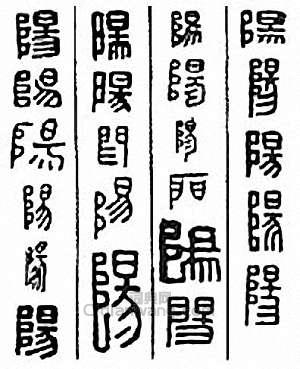 陽陽陽陽陽
陽陽陽陽陽陽
陽陽陽陽陽
陽陽陽陽陽陽
词典网